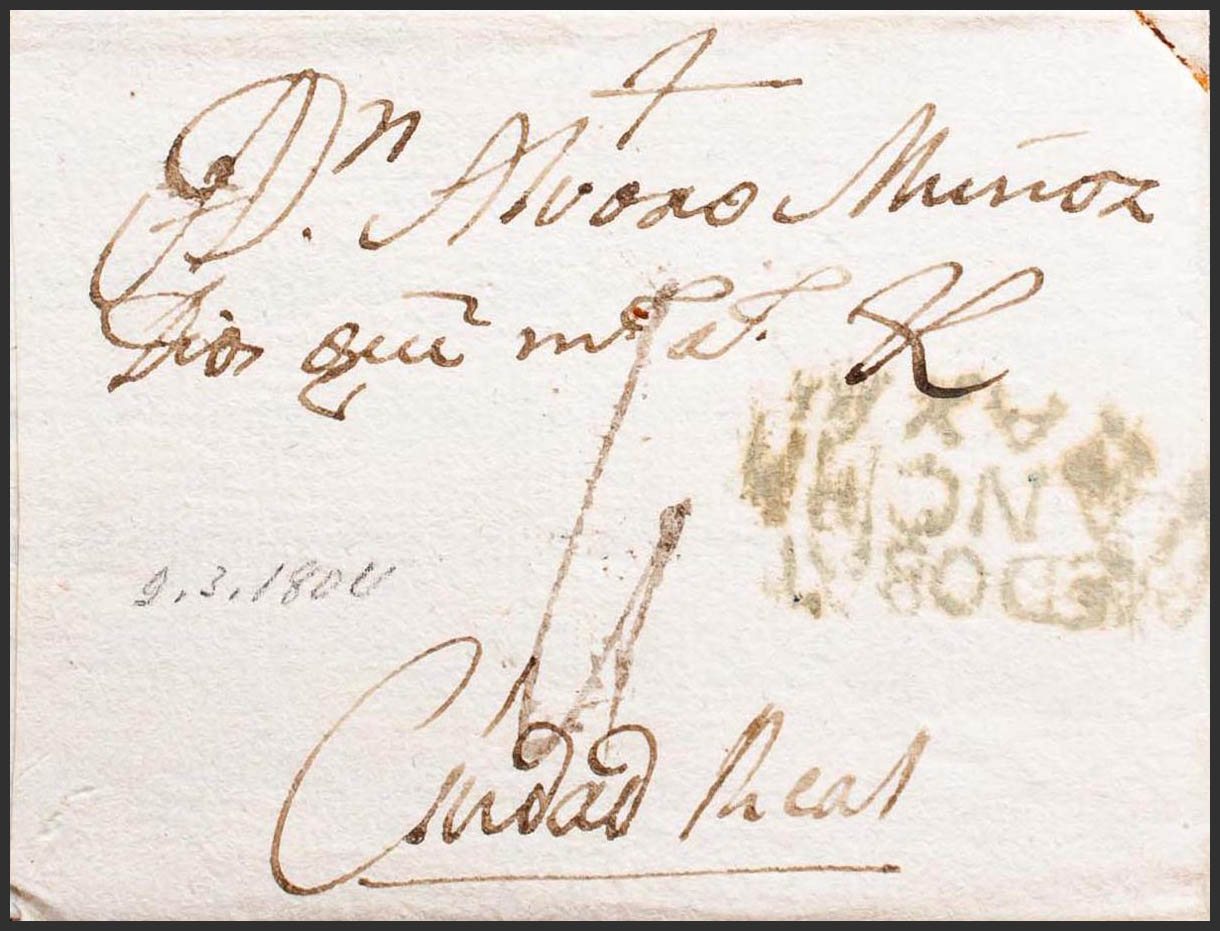 Dn. Alvaro Muñoz
Dios gue ms as. R
9.3.1804
Ciudad Real